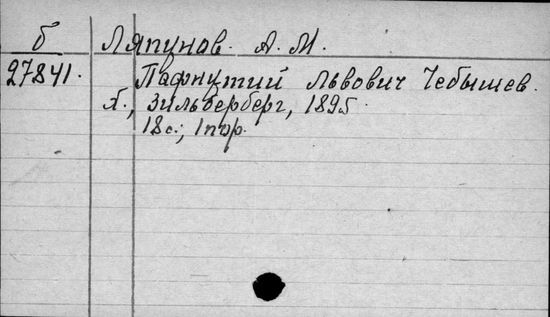 б Ляпунов. А. М.
27841. Пафнутий Львович Чебышев.
Х., Зильберберг, 1895.
18с.; 1 пор.